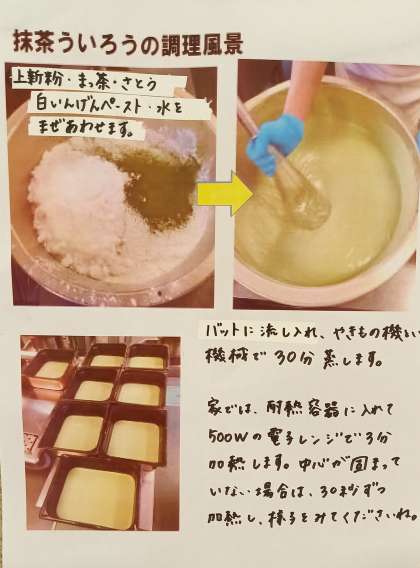 抹茶ういろうの調理風景
上新粉・まっ茶・さとう
白いんげんペースト・水を
まぜあわせます。
バットに流し入れ、やきもの機とい
機械で30分蒸します。
家では、耐熱容器に入れて
500Wの電子レンジで3分
加熱します。中心が固まって
いない場合は、30秒ずつ
加熱し、様子をみてくださいね。